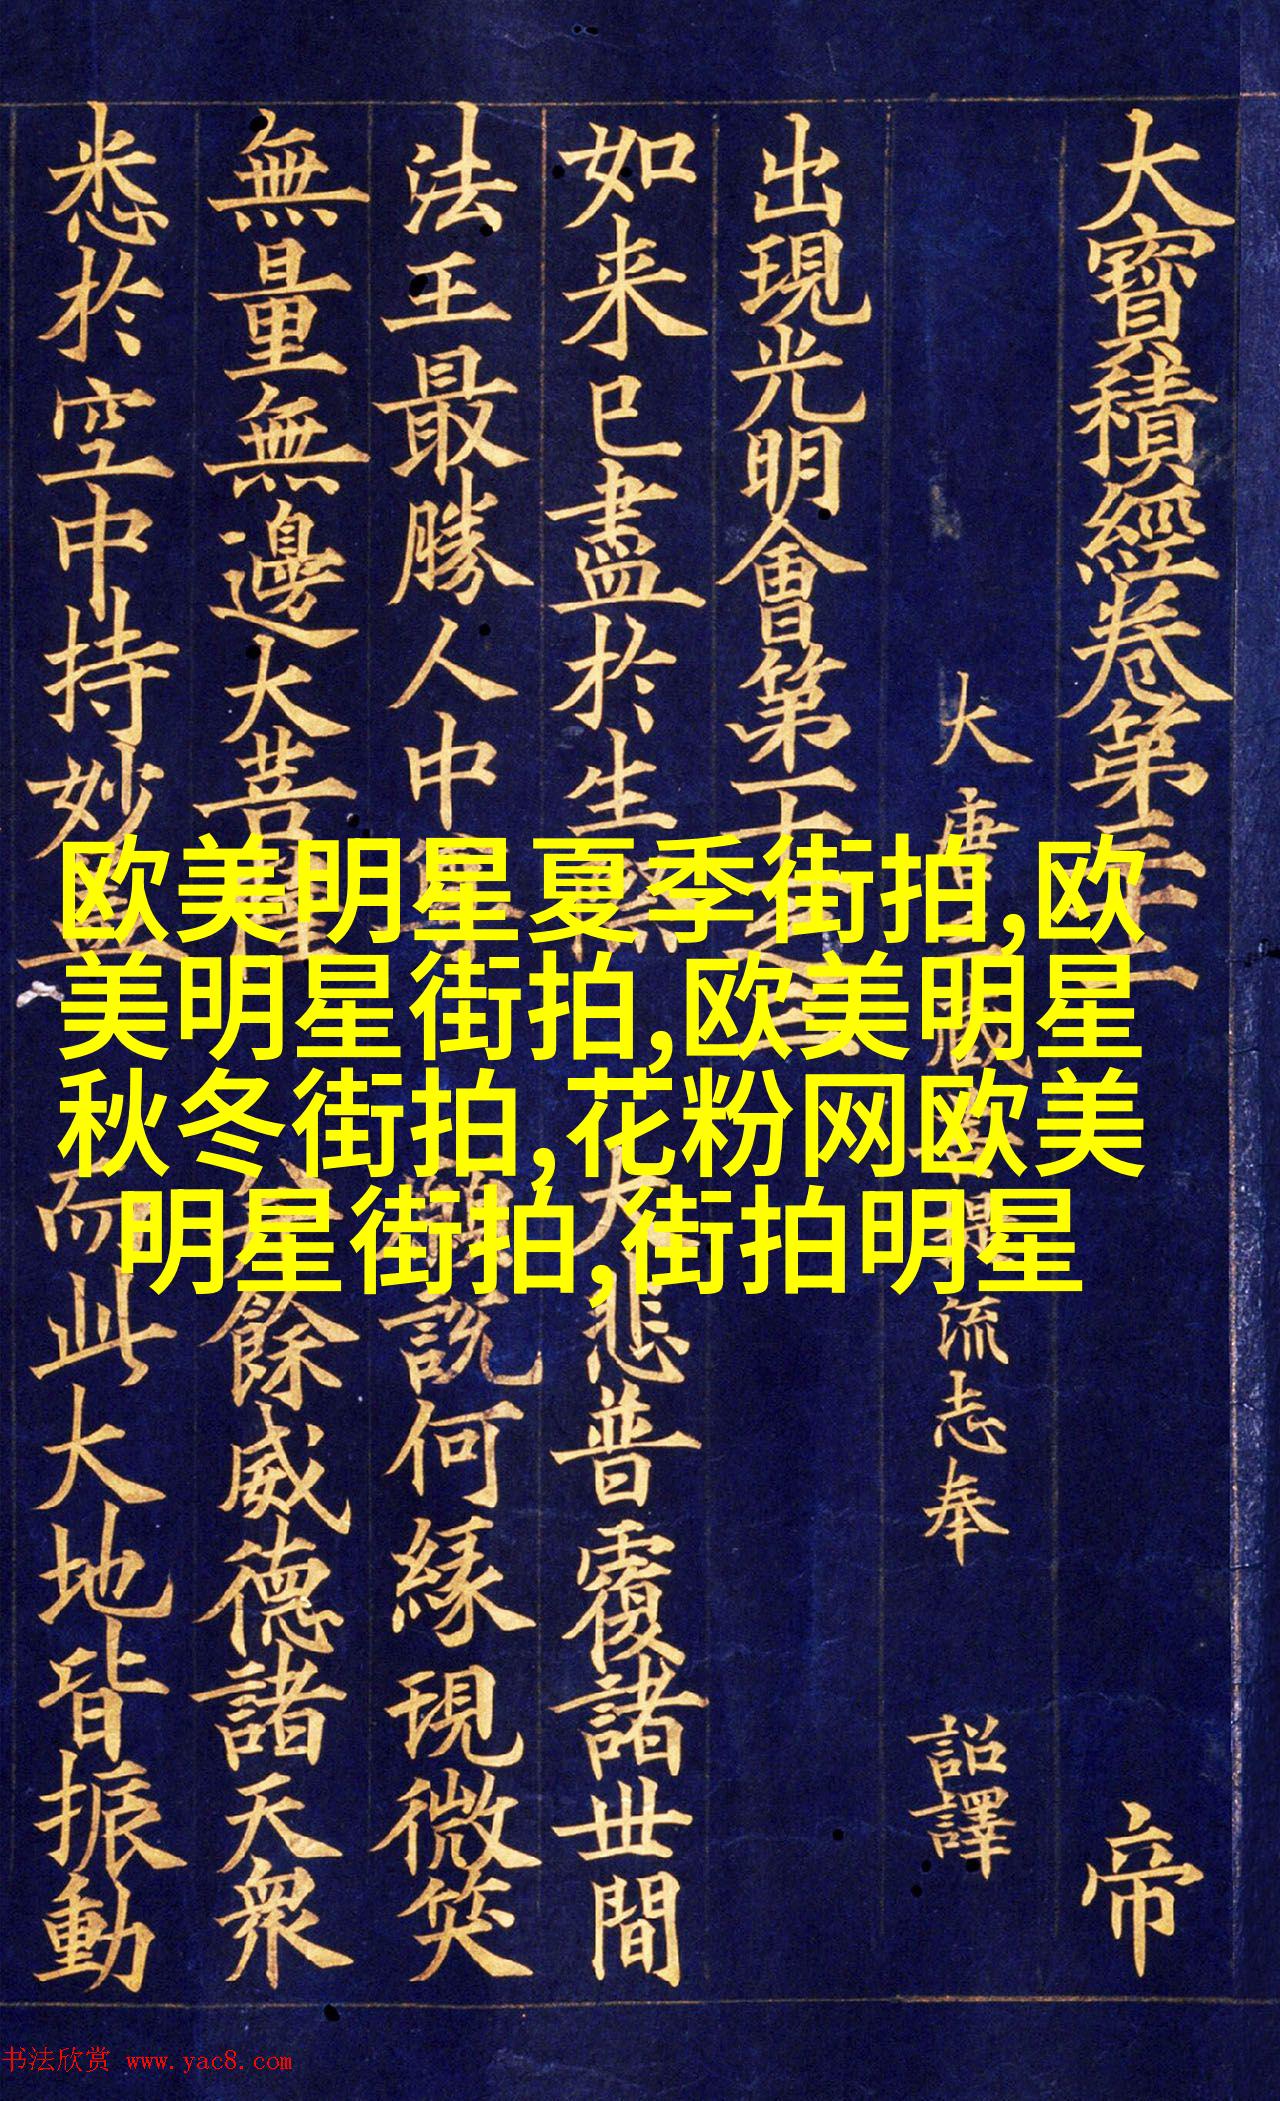 大寶積經卷第三十三 帝
大唐三藏菩提流志奉 詔譯
出現光明會第十一之
如来已盡於生 大悲普覆諸世間
法王最勝人中尊 願説何緣現微笑
無量無邊大菩薩 及餘威德諸天衆
悉於空中持妙盖 而此大地皆振動
欧美明星夏季街拍,欧
美明星街拍,欧美明星
秋冬街拍,花粉网欧美
明星街拍,街拍明星
书法欣赏 www.yac8.com